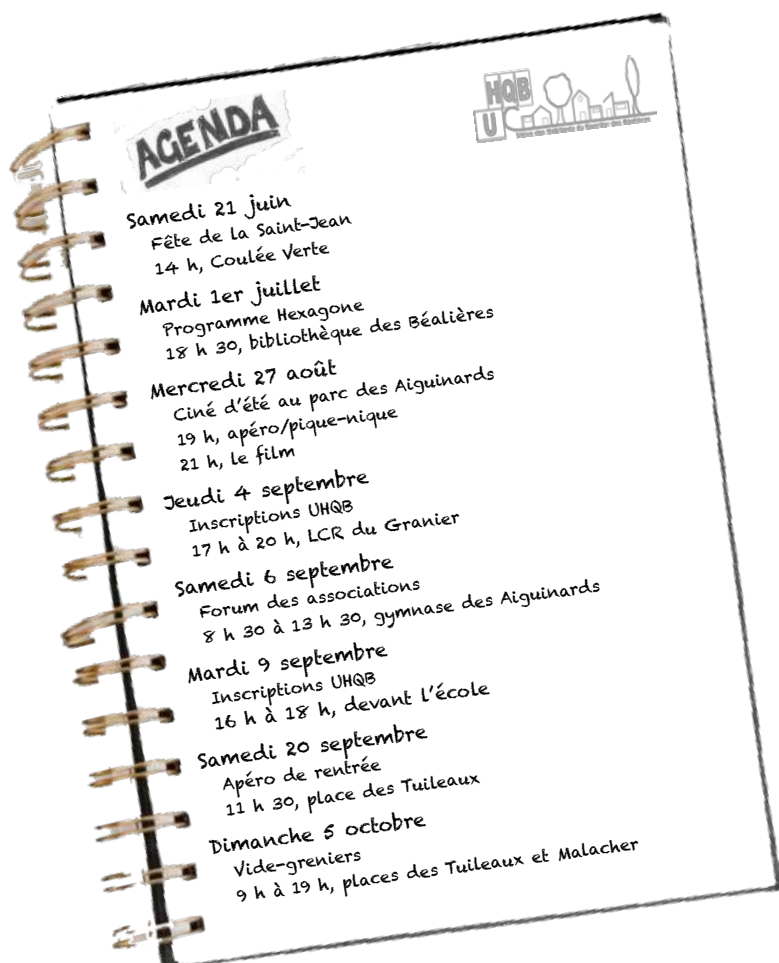 AGENDA
HQB
U
Union des Habitants du Quartier des Béalières
Samedi 21 juin
Fête de la Saint-Jean
14 h, Coulée Verte
Mardi 1er juillet
Programme Hexagone
18 h 30, bibliothèque des Béalières
Mercredi 27 août
Ciné d'été au parc des Aiguinards
19 h, apéro/pique-nique
21 h, le film
Jeudi 4 septembre
Inscriptions UHQB
17 h à 20 h, LCR du Granier
Samedi 6 septembre
Forum des associations
8 h 30 à 13 h 30, gymnase des Aiguinards
Mardi 9 septembre
Inscriptions UHQB
16 h à 18 h, devant l'école
Samedi 20 septembre
Apéro de rentrée
11 h 30, place des Tuileaux
Dimanche 5 octobre
Vide-greniers
9 h à 19 h, places des Tuileaux et Malacher